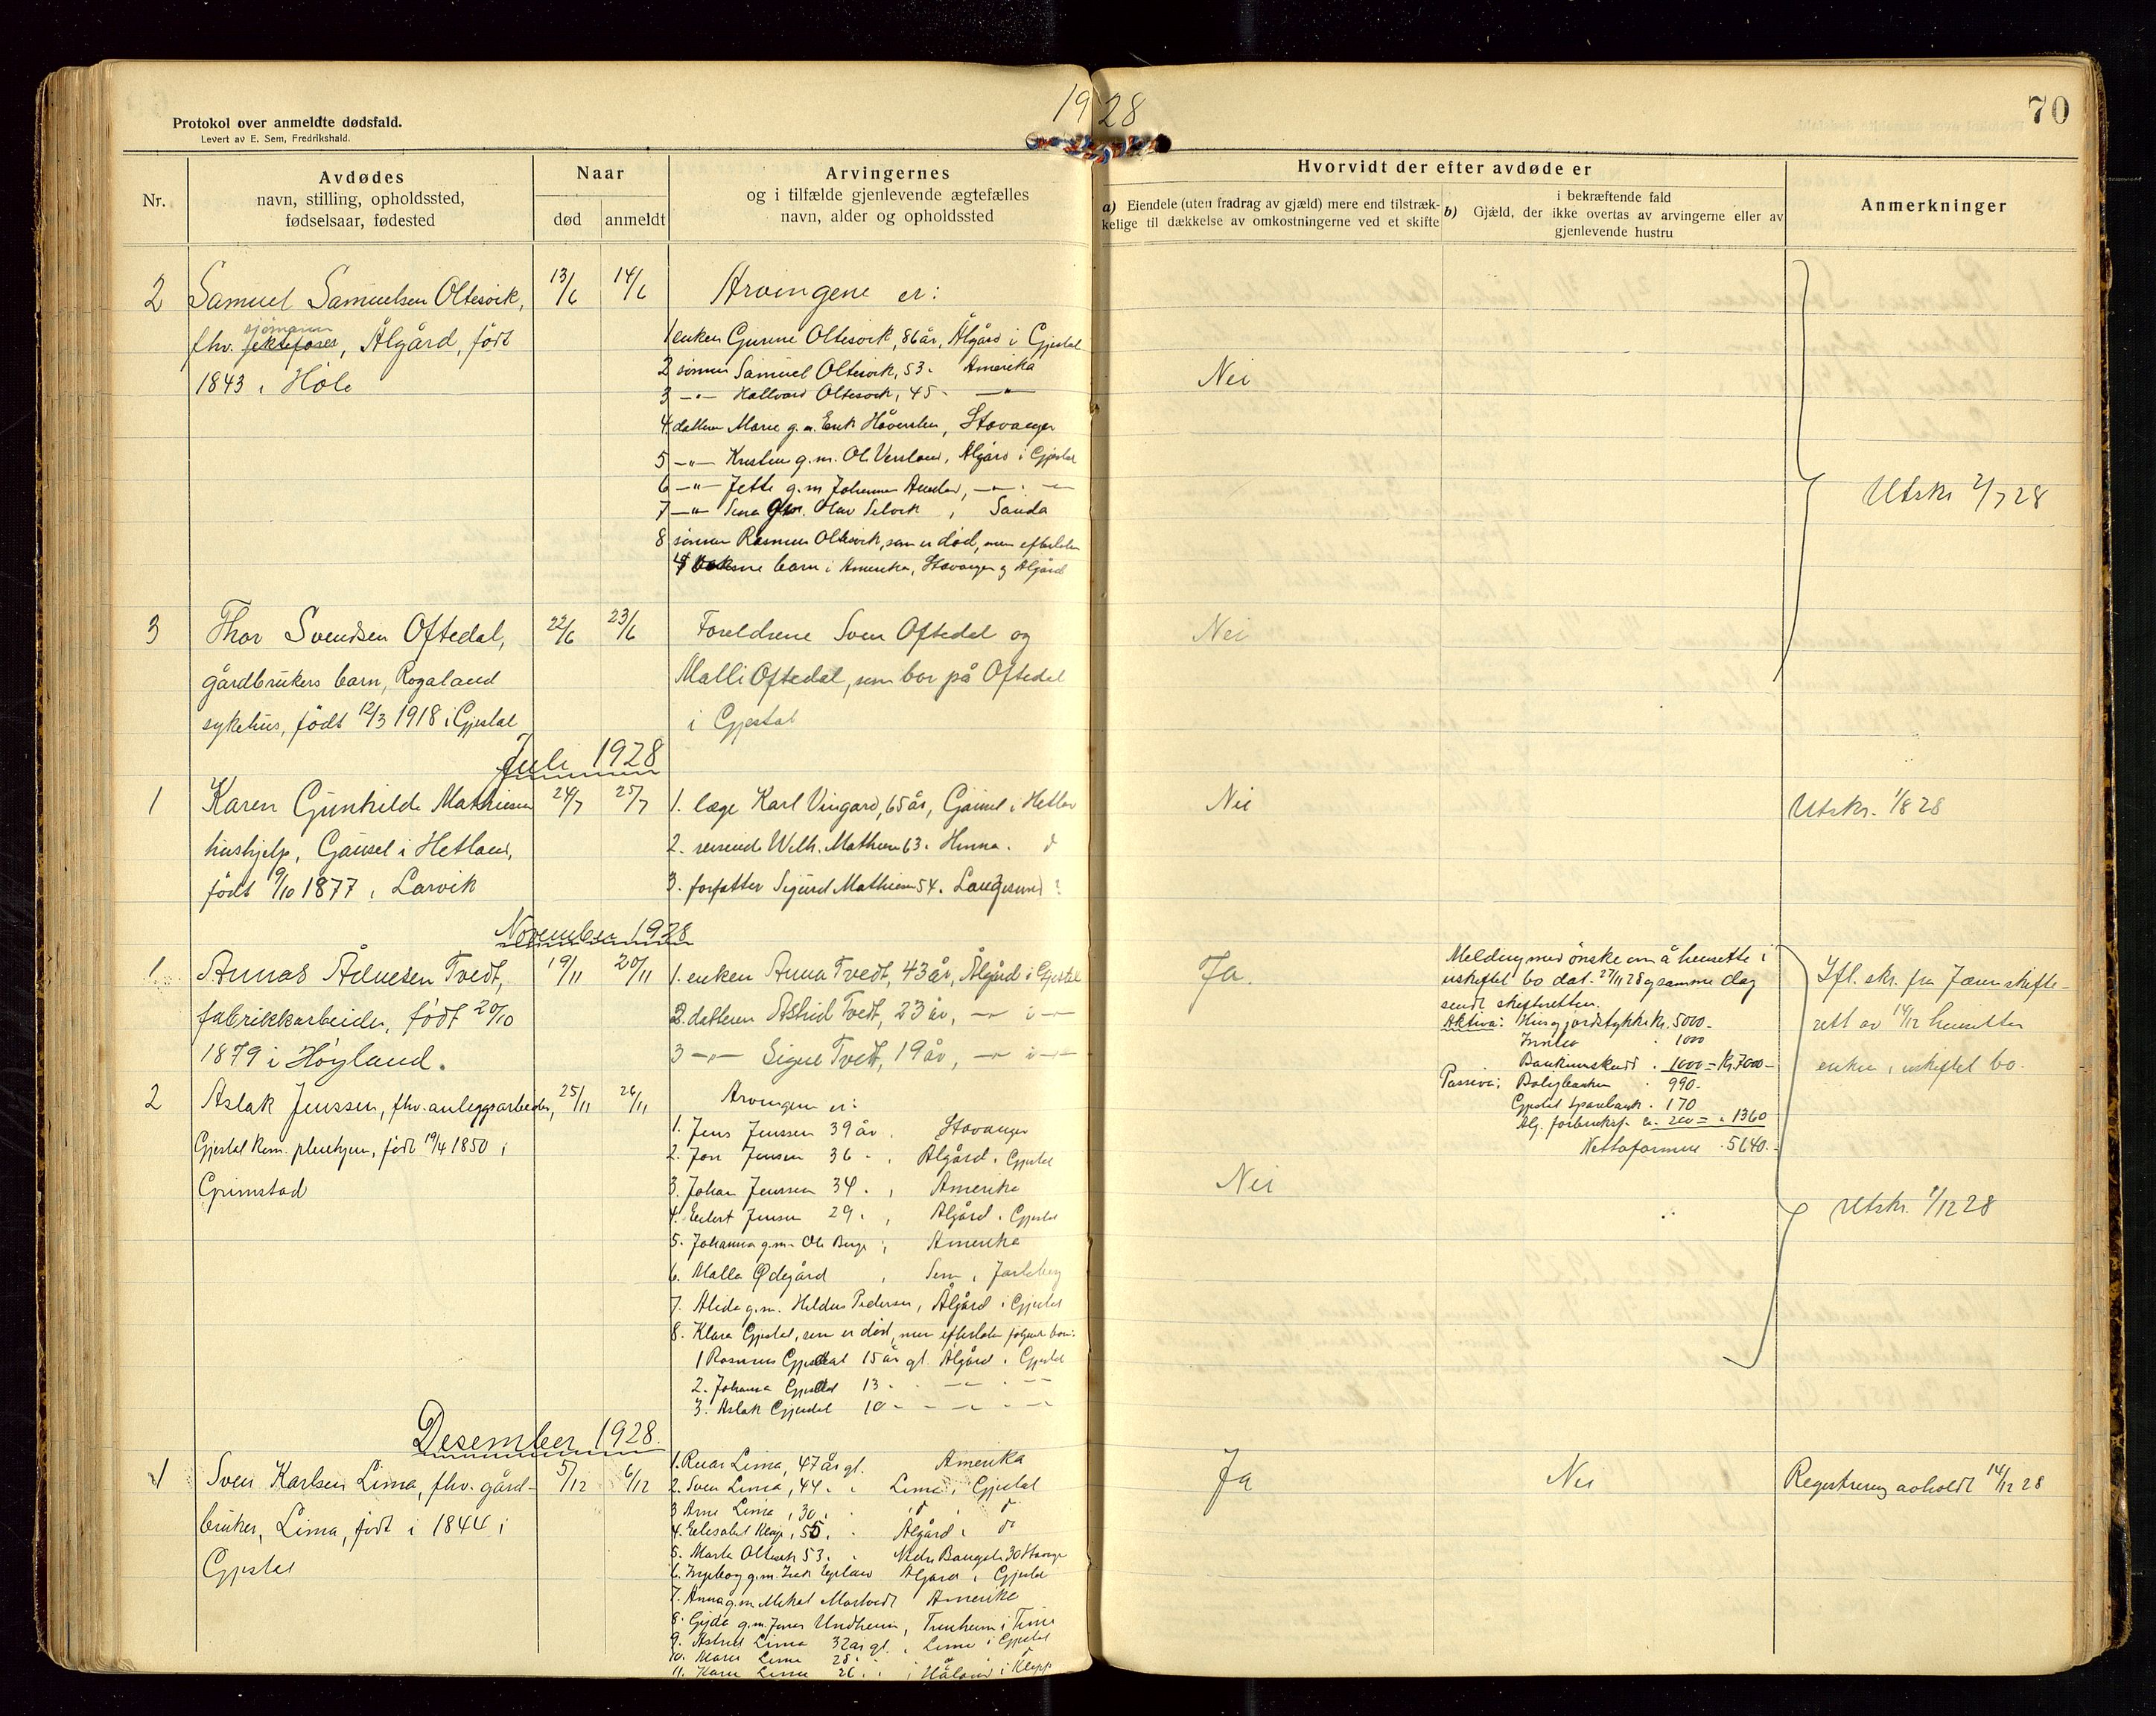 1928
70
Protokol over anmeldte dødsfald.
Levert av E. Sem, Fredrikshald.
Nr.
Avdødes
navn, stilling, opholdssted,
fødselsaar, fødested
Naar
død
anmeldt
Arvingernes
og i tilfælde gjenlevende ægtefælles
navn, alder og opholdssted
Hvorvidt der efter avdøde er
a) Eiendele (uten fradrag av gjæld) mere end tilstræk-
kelige til dækkelse av omkostningerne ved et skifte
i bekræftende fald
b) Gjæld, der ikke overtas av arvingerne eller av
gjenlevende hustru
Anmerkninger
2 Samuel Samuelsen Oltesvik, 13/6 14/6
sjømann
fhv. , Ålgård, født
1843 i Høle
Arvingene er:
1 enken Gunne Oltesvik, 86 år, Ålgård i Gjestal
2 sønnen Samuel Oltesvik, 53 - Amerika
3 -"- Hallvard Oltesvik, 45 - -"-
4 datteren Marie g.m. Enk , Stavanger
5 -"- Kristen g.m. Ole , Ålgård i Gjestal
6 -"- Jette g.m. Johannes , -"- -"-
7 -"- Sina g.m. Olav Selvik, Sauda
8 sønnen Rasmus Oltesvik, som er død, men efterlater
4 voksne barn i Amerika, Stavanger og Ålgård
Nei
Utskr 2/7 28
3 Thor Svendsen Oftedal, 22/6 23/6
gårdbrukers barn, Rogaland
sykehus, født 12/3 1918 i Gjestal
Foreldrene Sven Oftedal og
Malli Oftedal, som bor på Oftedal
i Gjestal
Nei
Juli 1928
1 Karen Gunhilde Mathiesen 24/7 25/7
hushjelp, Gausel i Hetland,
født 9/10 1877 i Larvik
1. læge Karl Vingard, 65 år, Gausel i Hetland
2. reisende Wilh. Mathiesen 63 - Hinna. d
3. forfatter Sigurd Mathiesen 54. Langesund ?
Nei
Utskr. 1/8 28
November 1928
1 Annas Ådnesen Tvedt, 19/11 20/11
fabrikkarbeider, født 20/10
1879 i Høyland.
1. enken Anna Tvedt, 43 år, Ålgård i Gjestal
2. datteren Astrid Tvedt, 23 år, -"- i -"-
3 -"- Signe Tvedt, 19 år, -"- i -"-
Ja.
Melding med ønske om å hensette i
uskiftet bo dat. 27/11 28 og samme dag
sendt skifteretten.
Aktiva: Hus og jordstykke kr. 5000 -
Innbo - 1000
Bankinnskudd . 1000 = kr. 7000 -
Passiva: Boligbanken - 990 -
Gjestal Sparebank - 170
Ålg. forbruksf. ca. 200 = - 1360
Nettoformue - 5640 -
Ifl. skr. fra Jæren skifte-
rett av 14/12 hensetter
enken i uskiftet bo.
2 Aslak Jenssen, fhv. anleggsarbeider, 25/11 26/11
Gjestal kom. pleiehjem, født 19/4 1850 i
Grimstad
Arvingene er:
1. Jens Jenssen 39 år. Stavanger
2. Jon Jensen 36 - , Ålgård i Gjestal
3. Johan Jenssen 34 - , Amerika
4. Jensen 29 - , Ålgård i Gjestal
5. Johanna g.m. Ole Berge , Amerika
6. Malla Ødegård , Sem i Jarlsberg
7. Alida g.m. Pedersen, Ålgård i Gjestal
8. Klara Gjestal, som er død, men efterlater følgende barn:
1 Rasmus Gjesdal 15 år gl. Ålgård i Gjestal
2. Johanna Gjesdal 13 - -"- - -"-
3. Aslak Gjesdal 10 - - -"- - -"-
Nei
Utskr. 1/12 28
Desember 1928.
1 Sven Karlsen Lima, fhv. gård- 5/12 6/12
bruker, Lima, født i 1844 i
Gjestal
1. Lima, 47 år gl. Amerika
2. Sven Lima, 44 - - Lima i Gjestal
3 Arne Lima, 30. - d - d
4. Elisabet , 55. - Ålgård i do
5. Marta Oltesvik 53. - Nedre 30 Stavanger
6. Ingeborg g.m. Ålgård i Gjestal
7. Anna g.m. Mikal Amerika
8. g.m. Jonas Undheim, i Time
9. Astrid Lima 32 år gl. , Lima i Gjestal
10. Maria Lima 28 - -
11. Lima 26 - - i i Klepp
Ja
Nei
Registrering avholdt 14/12 28